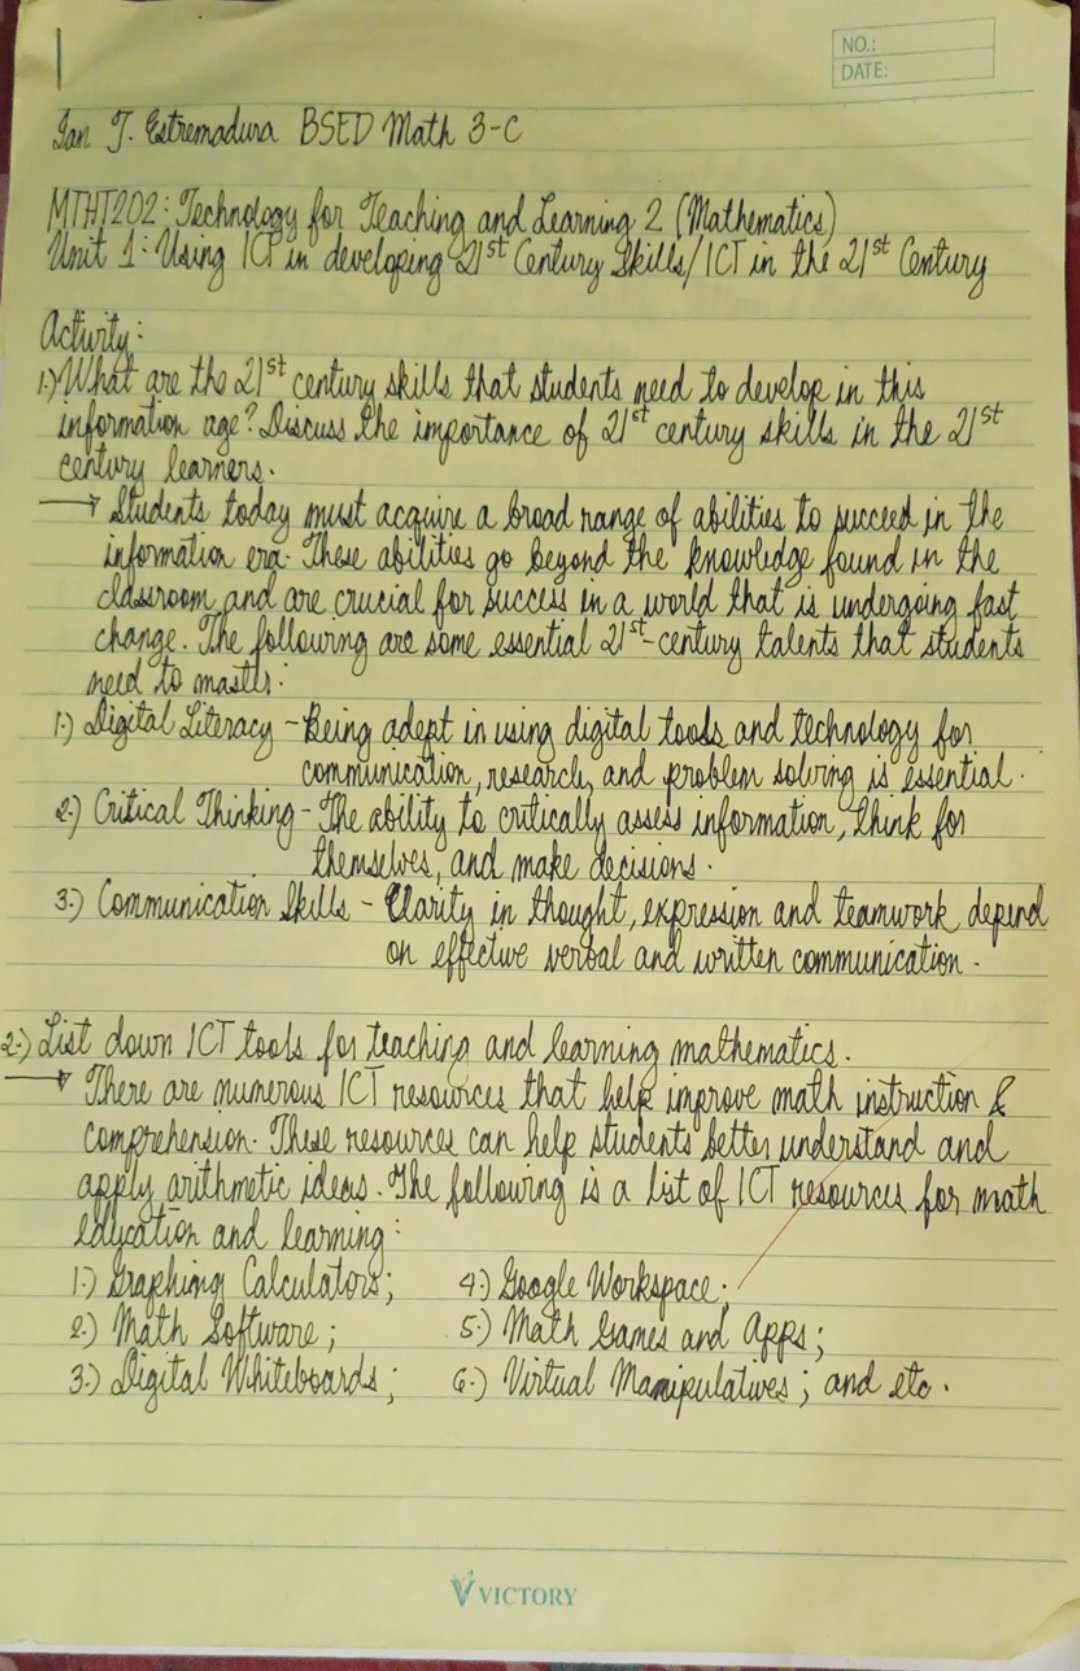 NO.:
DATE:
Ian J. Estremadura BSED Math 3-C
MTHT202: Technology for Teaching and Learning 2 (Mathematics)
Unit 1: Using ICT in developing 21st Century Skills/ICT in the 21st Century
Activity:
1.) What are the 21st century skills that students need to develop in this
information age? Discuss the importance of 21st century skills in the 21st
century learners.
→ Students today must acquire a broad range of abilities to succeed in the
information era. These abilities go beyond the knowledge found in the
classroom and are crucial for success in a world that is undergoing fast
change. The following are some essential 21st-century talents that students
need to master:
1.) Digital Literacy - Being adept in using digital tools and technology for
communication, research, and problem solving is essential.
2.) Critical Thinking - The ability to critically assess information, think for
themselves, and make decisions.
3.) Communication Skills - Clarity in thought, expression and teamwork depend
on effective verbal and written communication.
2.) List down ICT tools for teaching and learning mathematics.
→ There are numerous ICT resources that help improve math instruction &
comprehension. These resources can help students better understand and
apply arithmetic ideas. The following is a list of ICT resources for math
education and learning:
1.) Graphing Calculators; 4.) Google Workspace;
2.) Math Software; 5.) Math Games and Apps;
3.) Digital Whiteboards; 6.) Virtual Manipulatives; and etc.
VICTORY